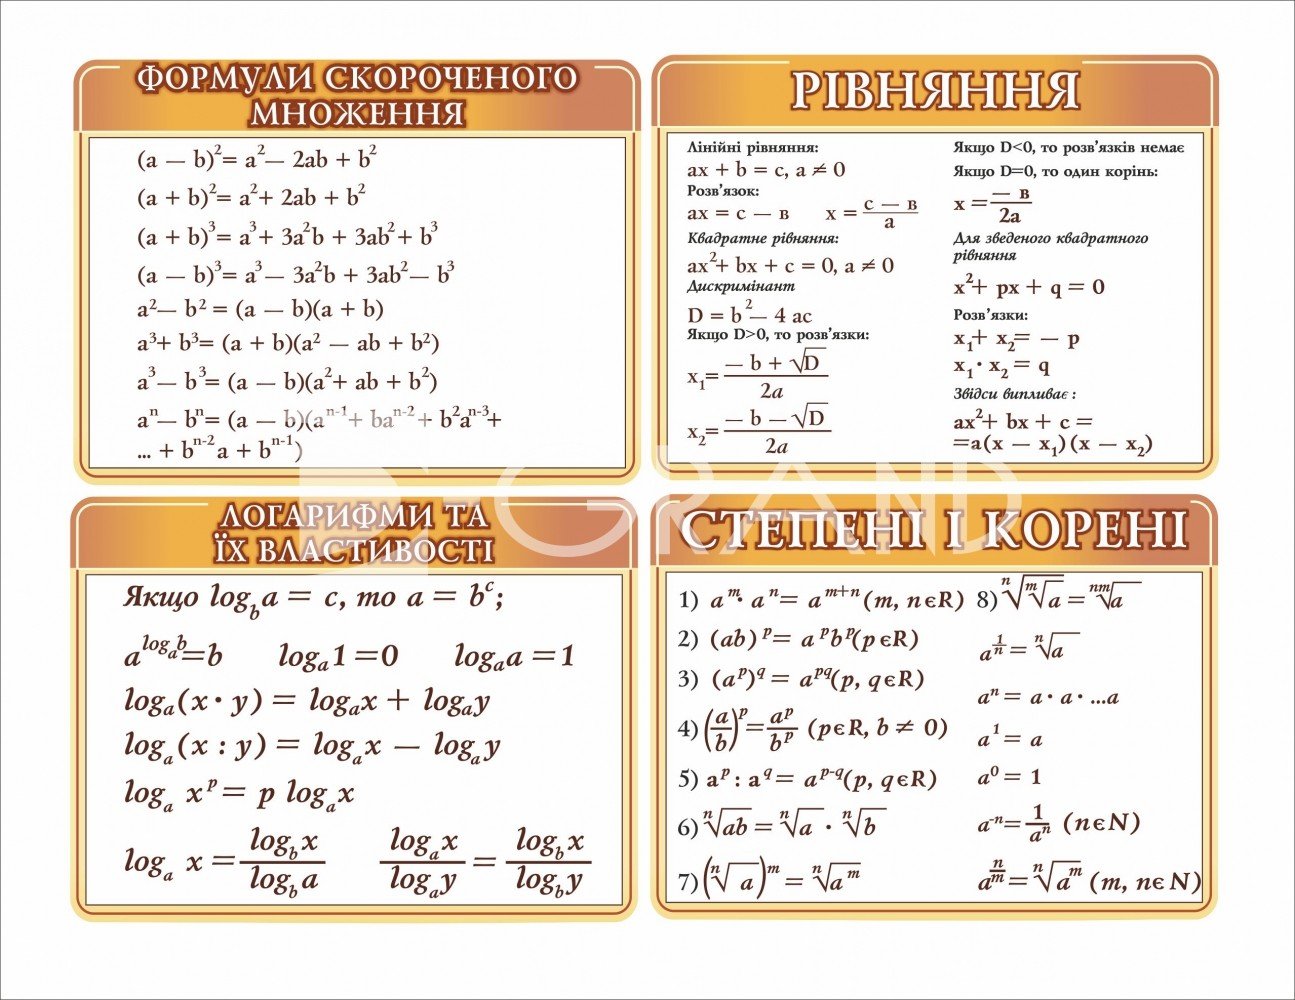 ФОРМУЛИ СКОРОЧЕНОГО
МНОЖЕННЯ
(a — b)²= a²— 2ab + b²
(a + b)²= a²+ 2ab + b²
(a + b)³= a³+ 3a²b + 3ab²+ b³
(a — b)³= a³— 3a²b + 3ab²— b³
a²— b² = (a — b)(a + b)
a³+ b³= (a + b)(a² — ab + b²)
a³— b³= (a — b)(a²+ ab + b²)
aⁿ— bⁿ= (a — b)(aⁿ⁻¹+ baⁿ⁻²+ b²aⁿ⁻³+
... + bⁿ⁻²a + bⁿ⁻¹)
РІВНЯННЯ
Лінійні рівняння:
ax + b = c, a ≠ 0
Розв'язок:
ax = c — в x = (c — в)/a
Квадратне рівняння:
ax²+ bx + c = 0, a ≠ 0
Дискримінант
D = b²— 4 ac
Якщо D>0, то розв'язки:
x₁= (— b + √D)/2a
x₂= (— b — √D)/2a
Якщо D<0, то розв'язків немає
Якщо D=0, то один корінь:
x = (— в)/2a
Для зведеного квадратного
рівняння
x²+ px + q = 0
Розв'язки:
x₁+ x₂= — p
x₁· x₂ = q
Звідси випливає :
ax²+ bx + c =
=a(x — x₁)(x — x₂)
ЛОГАРИФМИ ТА
ЇХ ВЛАСТИВОСТІ
Якщо log_b a = c, то a = b^c;
a^(log_a b)=b log_a 1=0 log_a a =1
log_a(x · y) = log_a x + log_a y
log_a(x : y) = log_a x — log_a y
log_a x^p = p log_a x
log_a x = (log_b x)/(log_b a) (log_a x)/(log_a y) = (log_b x)/(log_b y)
GRAND
СТЕПЕНІ І КОРЕНІ
1) a^m · a^n = a^(m+n) (m, nєR)
2) (ab)^p = a^p b^p (pєR)
3) (a^p)^q = a^(pq) (p, qєR)
4) (a/b)^p = a^p/b^p (pєR, b ≠ 0)
5) a^p : a^q = a^(p-q) (p, qєR)
6) ⁿ√ab = ⁿ√a · ⁿ√b
7) (ⁿ√a)^m = ⁿ√a^m
8) ⁿ√ᵐ√a = ⁿᵐ√a
a^(1/n) = ⁿ√a
aⁿ = a · a · ...a
a¹ = a
a⁰ = 1
a⁻ⁿ= 1/aⁿ (nєN)
a^(n/m) = ⁿ√a^m (m, nєN)